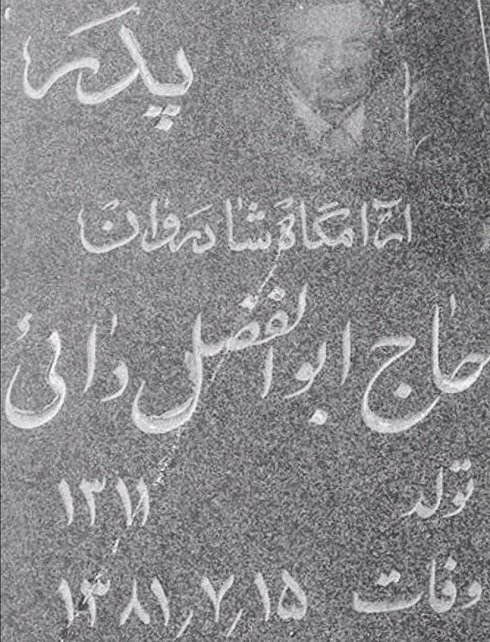 پدر
آرامگاه شادروان
حاج ابوالفضل دائی
تولد ۱۳۱۱
وفات ۱۳۸۱٫۷٫۱۵